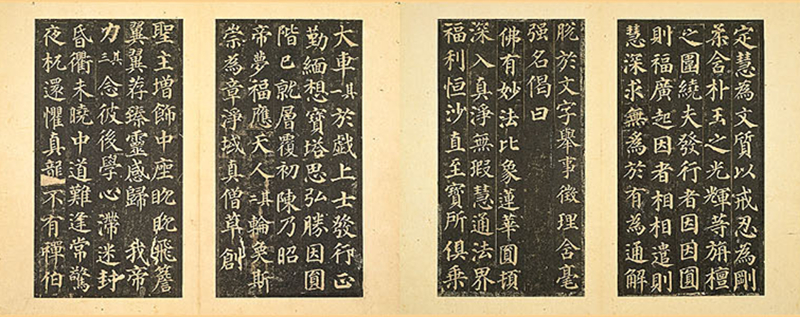 定慧為文質以戒忍為剛
柔含朴玉之光輝等旃檀
之圍繞夫發行者因因圓
則福廣起因者相相遣則
慧深求無為於有為通解
脫於文字舉事徵理含毫
强名偈曰
佛有妙法比象蓮華圓頓
深入真淨無瑕慧通法界
福利恒沙直至寶所俱乘
大車其一於戲上士發行正
勤緬想寶塔思弘勝因圓
階已就層覆初陳乃昭
帝夢福應天人其二輪奐斯
崇為章淨域真僧草創
聖主增飾中座眈眈飛簷
翼翼荐臻靈感歸 我帝
力其三念彼後學心滯迷封
昏衢未曉中道難逢常驚
夜杌還懼真龍不有禪伯